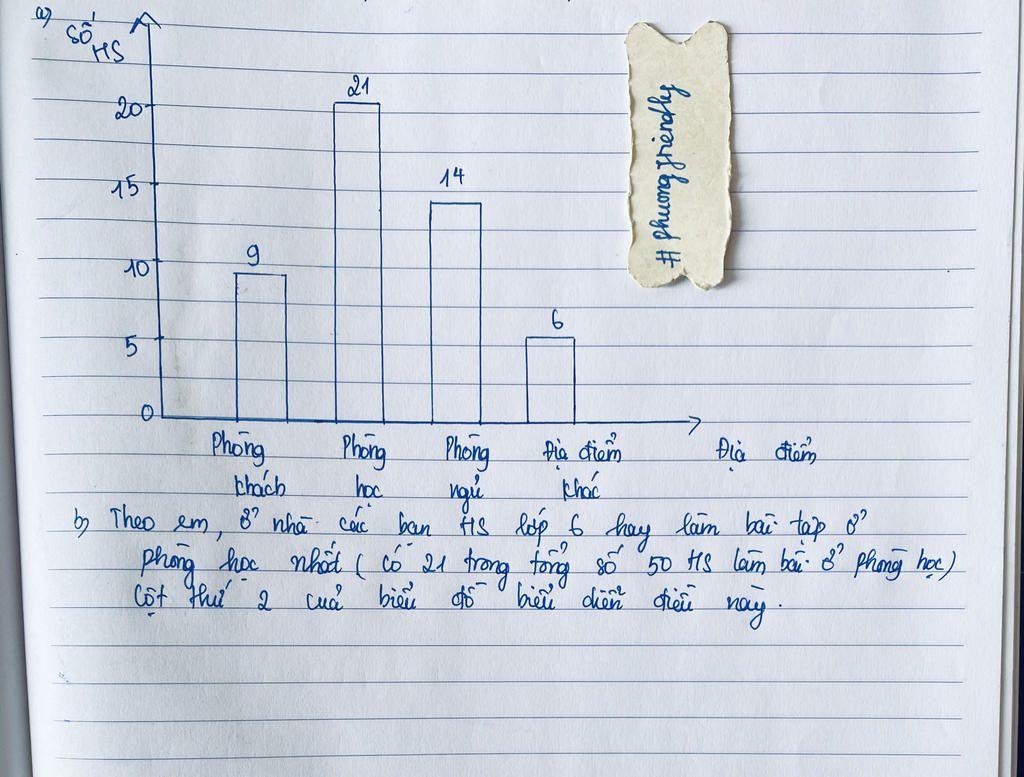 a)
Số HS
21
20
15
14
10
9
5
6
0
Phòng khách
Phòng học
Phòng ngủ
Địa điểm khác
Địa điểm
# phuongfriendly
b) Theo em, ở nhà các bạn HS lớp 6 hay làm bài tập ở
phòng học nhất ( có 21 trong tổng số 50 HS làm bài ở phòng học)
Cột thứ 2 của biểu đồ biểu diễn điều này.